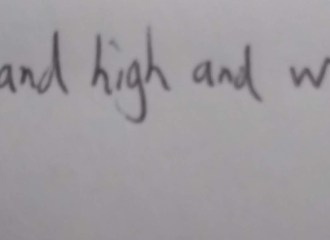 and high and w